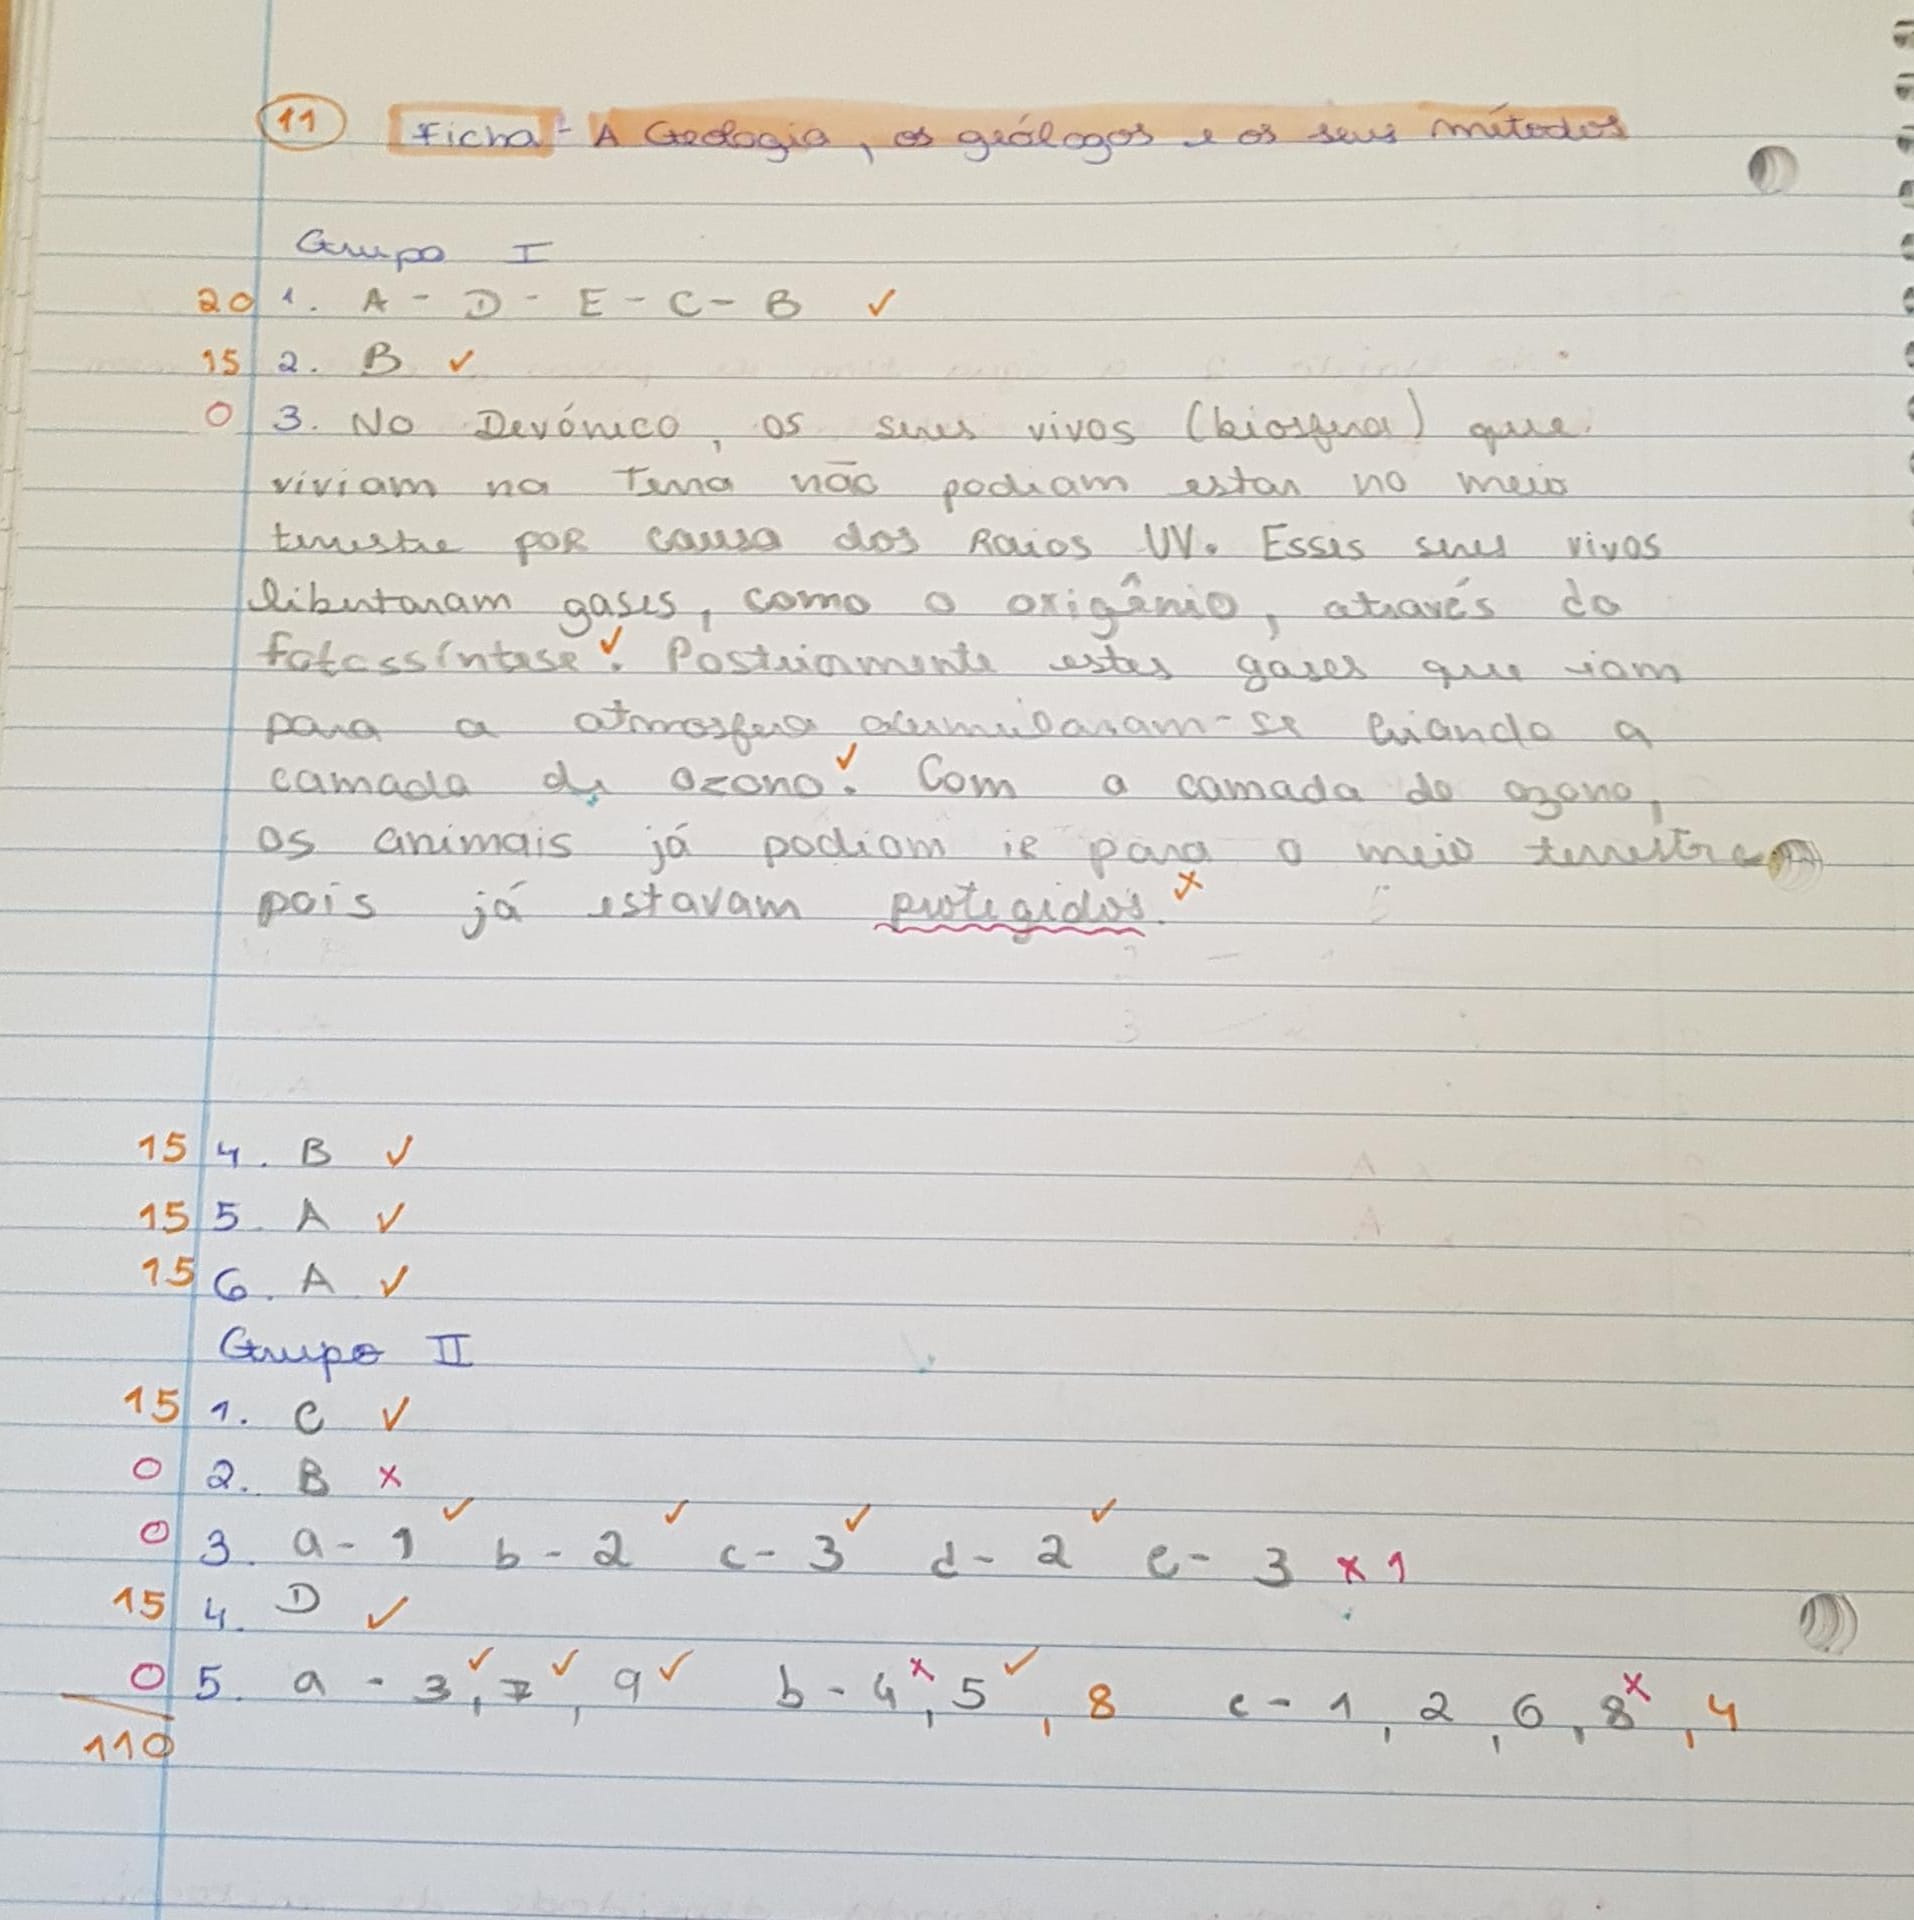 11 Ficha - A Geologia, os geólogos e os seus métodos
Grupo I
20 1. A - D - E - C - B ✓
15 2. B ✓
0 3. No Devónico, os seres vivos (biosfera) que
viviam na Terra não podiam estar no meio
terrestre por causa dos Raios UV. Esses seres vivos
libertaram gases, como o oxigênio, através da
fotossíntese ✓. Posteriormente estes gases que iam
para a atmosfera acumularam-se criando a
camada de ozono ✓. Com a camada do ozono,
os animais já podiam ir para o meio terrestre
pois já estavam protegidos. x
15 4. B ✓
15 5. A ✓
15 6. A ✓
Grupo II
15 1. C ✓
0 2. B x
0 3. a - 1 ✓ b - 2 ✓ c - 3 ✓ d - 2 ✓ e - 3 x 1
15 4. D ✓
0 5. a - 3 ✓, 7 ✓, 9 ✓ b - 4 x, 5 ✓, 8 c - 1, 2, 6, 8 x, 4
110